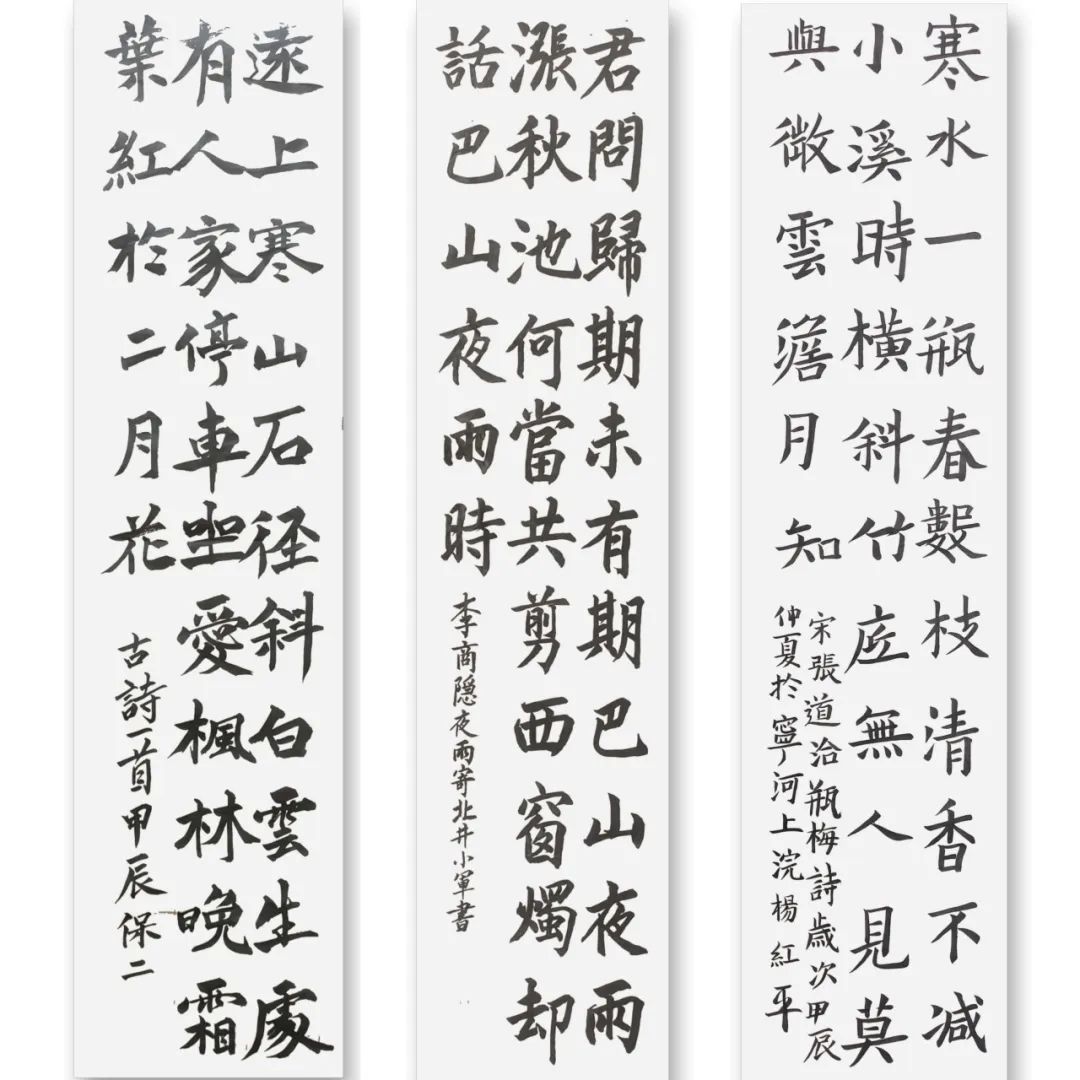 寒水一瓶春數枝清香不減
小溪時橫斜竹底無人見莫
與微雲澹月知
宋張道洽瓶梅詩歲次甲辰
仲夏於寧河上浣楊紅平
君問歸期未有期巴山夜雨
漲秋池何當共剪西窗燭却
話巴山夜雨時
李商隱夜雨寄北井小軍書
遠上寒山石径斜白雲生處
有人家停車坐愛楓林晚霜
葉紅於二月花
古詩一首甲辰保二